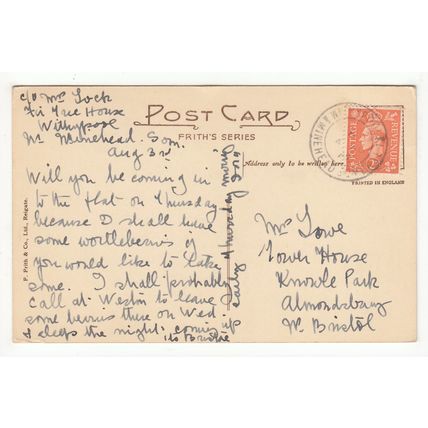 c/o Mrs Lock
Fir Tree House
Withypool
Nr Minehead. Som.
Aug 3rd
POST CARD
FRITH'S SERIES
Address only to be written here.
PRINTED IN ENGLAND
POSTAGE
REVENUE
F. Frith & Co., Ltd., Reigate.
Will you be coming in
to the flat on Thursday
because I shall have
some wortleberries if
you would like to take
some. I shall probably
call at Weston to leave
some berries there on Wed.
& sleep the night. coming up
to Bristol
early Thursday morng
Mrs Lowe
Tower House
Knowle Park
Almondsbury
Nr. Bristol